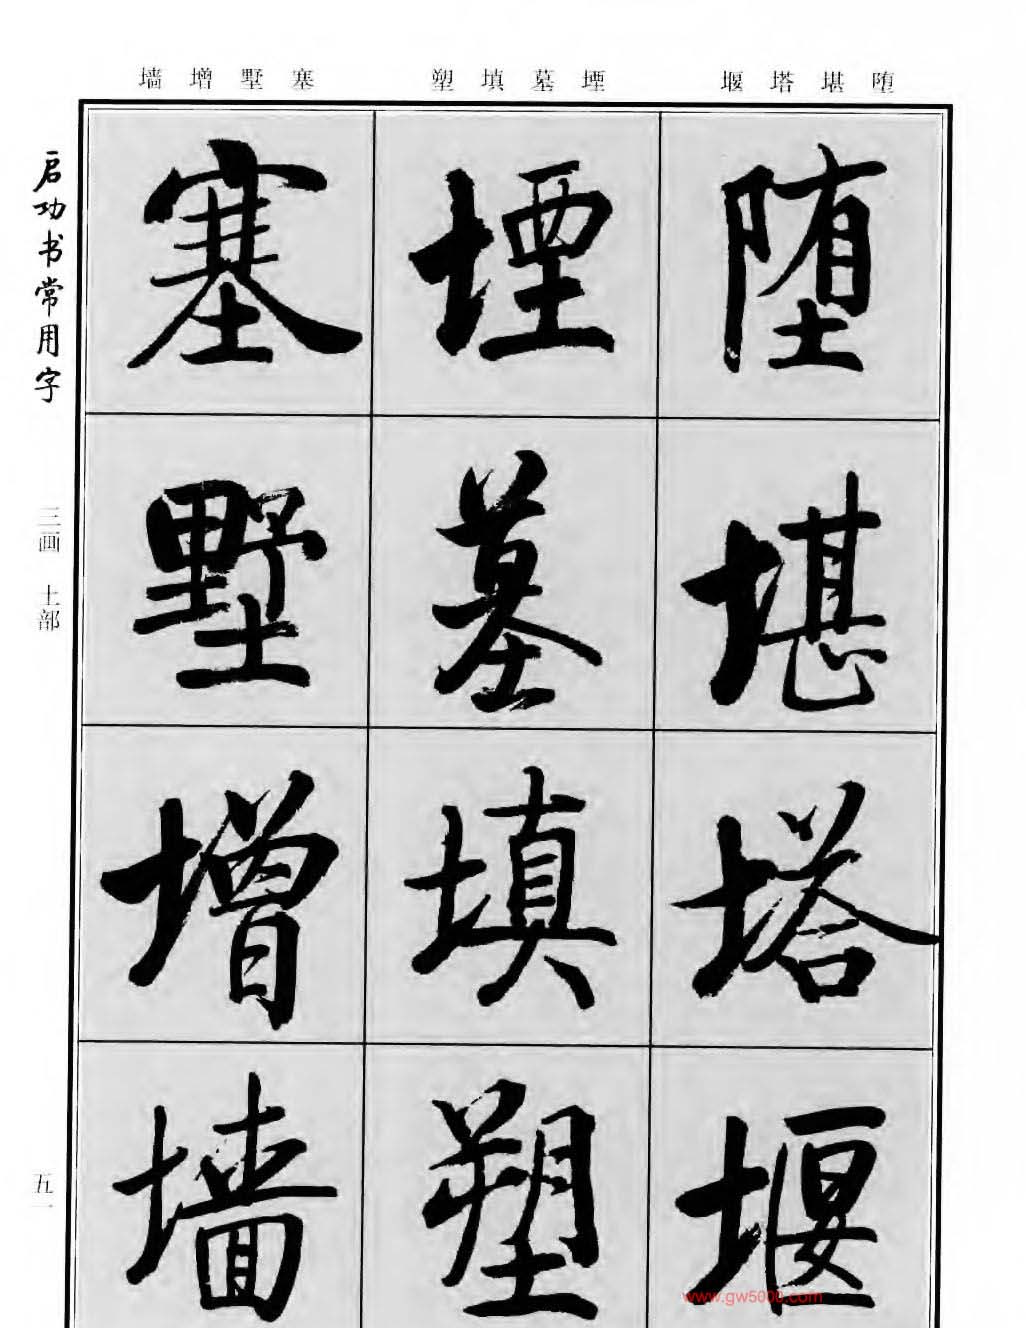 堕堪塔堰
堙墓填塑
塞墅增墙
启功书常用字
三画 土部
五一
堕
堪
塔
堰
堙
墓
填
塑
塞
墅
增
墙
www.gw5000.com